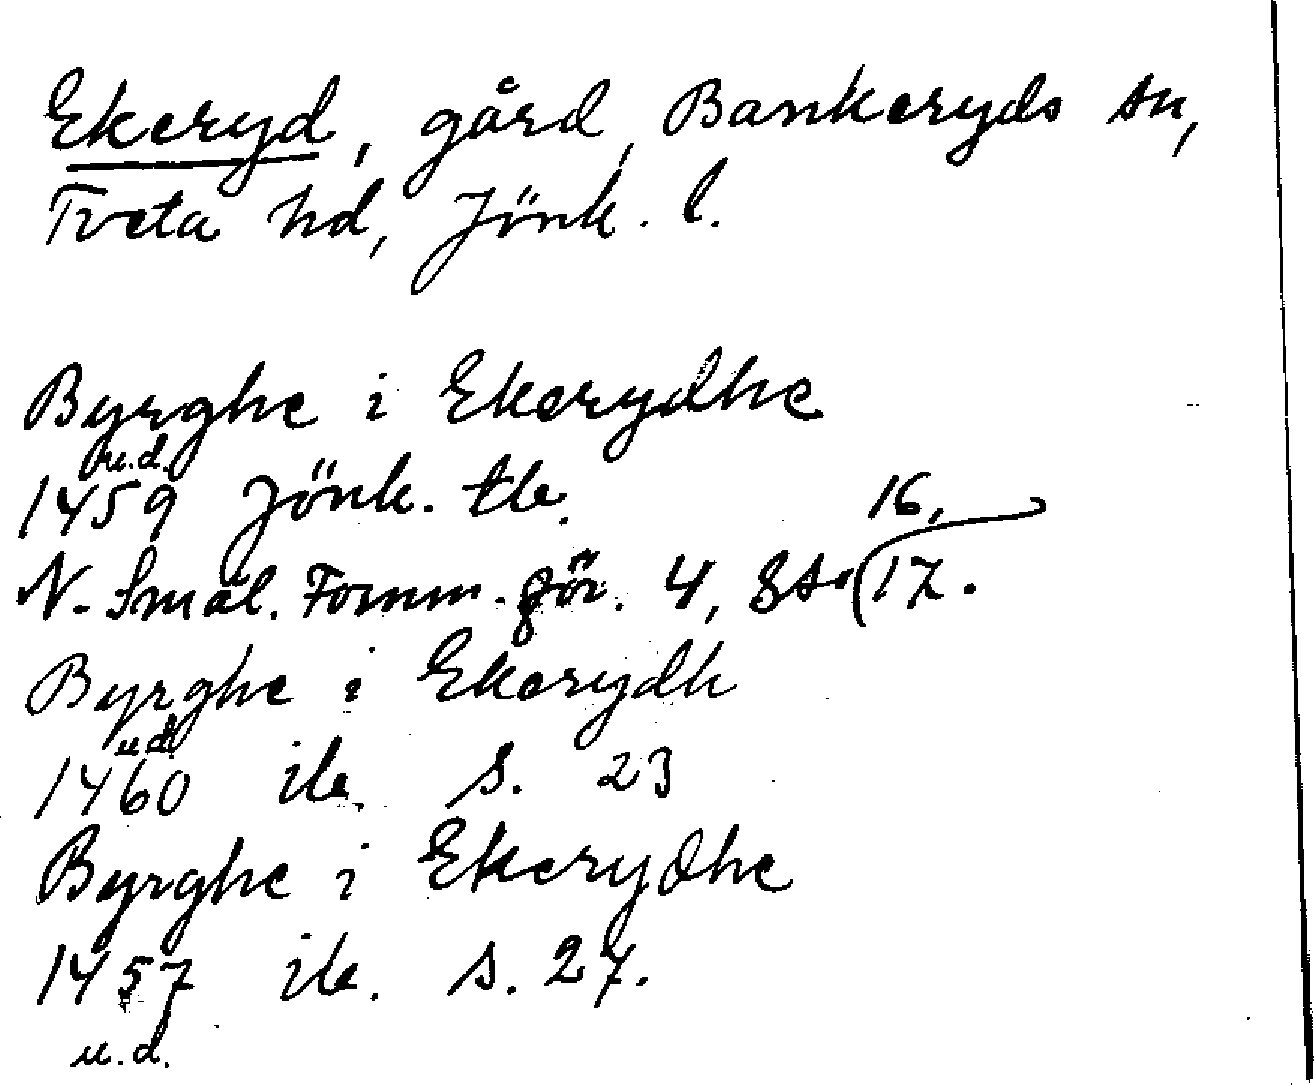 Ekeryd, gård, Bankeryds sn,
Tveta hd, Jönk. l.
Byrghe i Ekerydhe
u.d.
1459 Jönk. tb.
16,
N. Smål. Fornm. för. 4, s. 17.
Byrghe i Ekerydh
u.d.
1460 ib. s. 23
Byrghe i Ekerydhe
1457 ib. s. 27.
u.d.